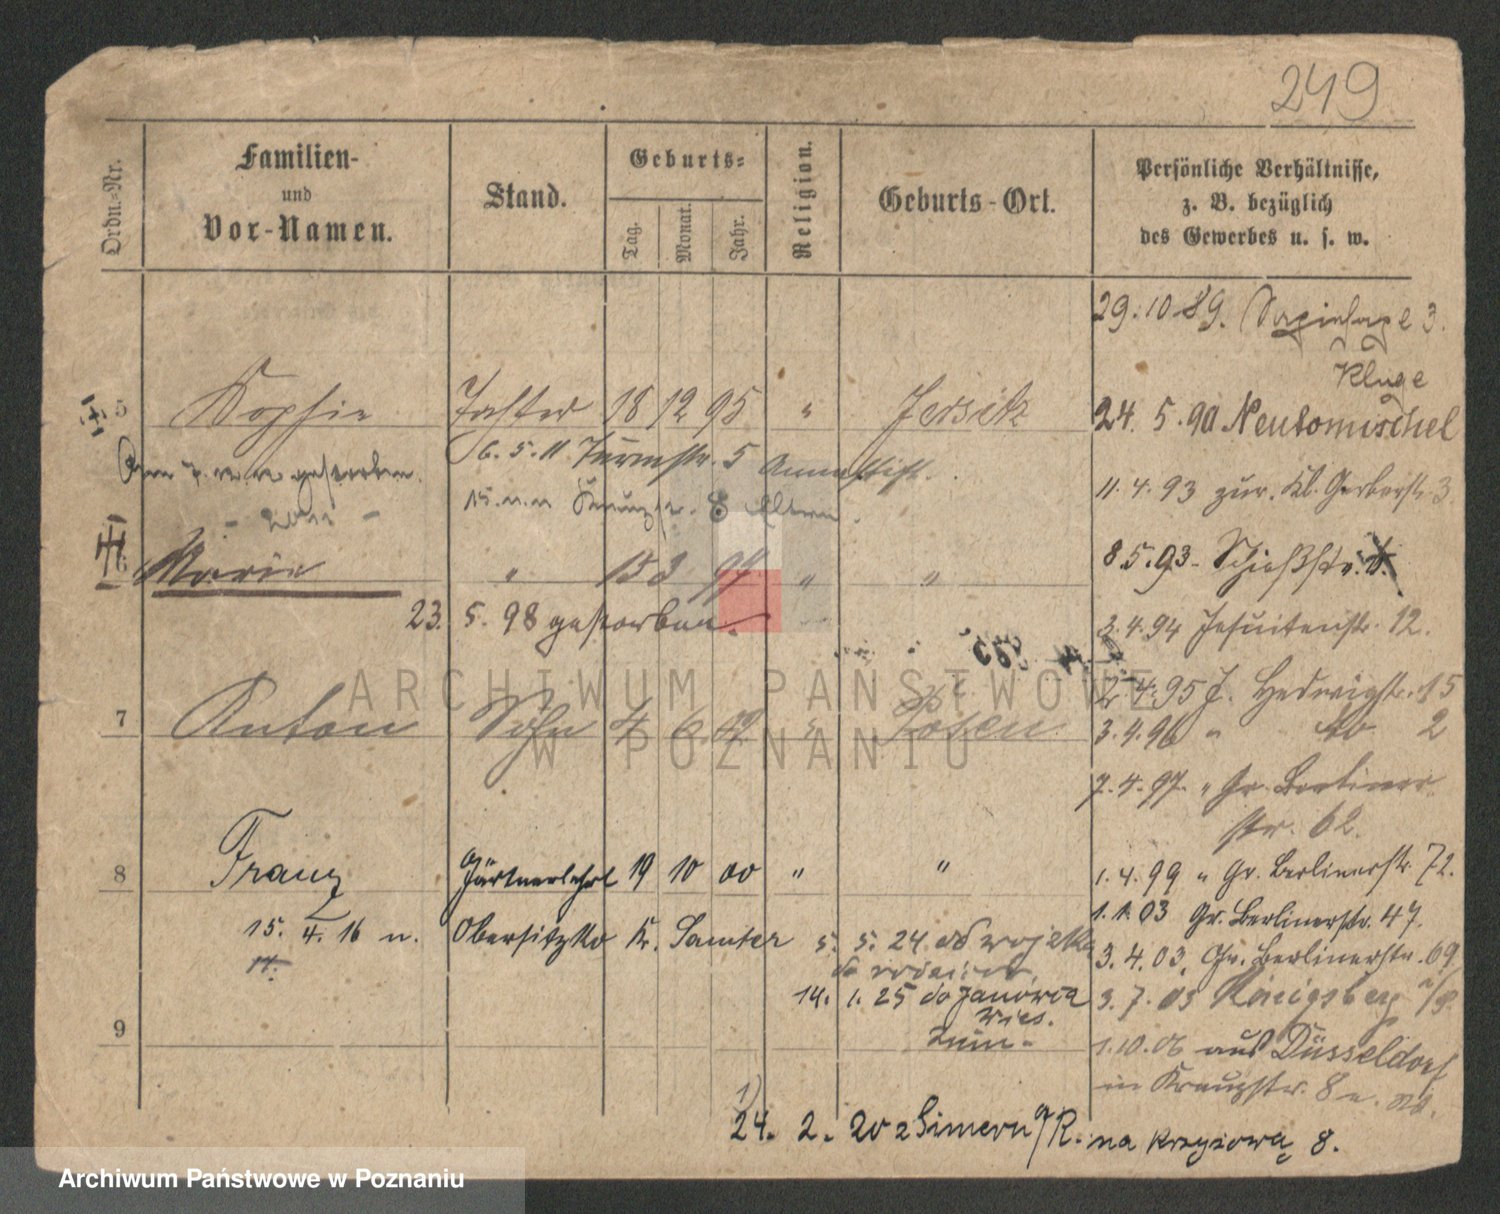 249
Ordn.-Nr.
Familien-
und
Vor-Namen.
Stand.
Geburts-
Tag.
Monat.
Jahr.
Religion.
Geburts-Ort.
Persönliche Verhältnisse,
z. B. bezüglich
des Gewerbes u. s. w.
29. 10. 89. 3.
Kluge
5 Sophie Tochter 18 12 95 " Jersik
24. 5. 90 Neutomischel
6. 5. 11 Turmstr. 5 Annastift.
gestorben.
11. 4. 93 zur. Kl. Gerberstr. 3
8 Eltern
6 Marie " 15 3 97 " "
8. 5. 93 Schießstr.
23. 5. 98 gestorben.
2. 4. 94 Jesuitenstr. 12.
2. 4. 95 J. Hedwigstr. 15
7 Anton Sohn 4 6. 99 " Posen
3. 4. 96 " do 2
7. 4. 97. " Gr. Berliner
str. 62.
8 Franz Gärtnerlehrl 19 10 00 " "
1. 4. 99 " Gr. Berlinerstr. 72.
1. 1. 03 Gr. Berlinerstr. 47.
15. 4. 16 n. Obersitzko Kr. Samter
14.
5. 5. 24 do wojska
3. 4. 03. Gr. Berlinerstr. 69
14. 1. 25 do Janowca
3. 7. 03 Königsberg i/P.
9
1. 10. 06 aus Düsseldorf
in Kreuzstr. 8
24. 2. 20 z Simern a/R. na Krzyżową 8.
ARCHIWUM PAŃSTWOWE
W POZNANIU
Archiwum Państwowe w Poznaniu